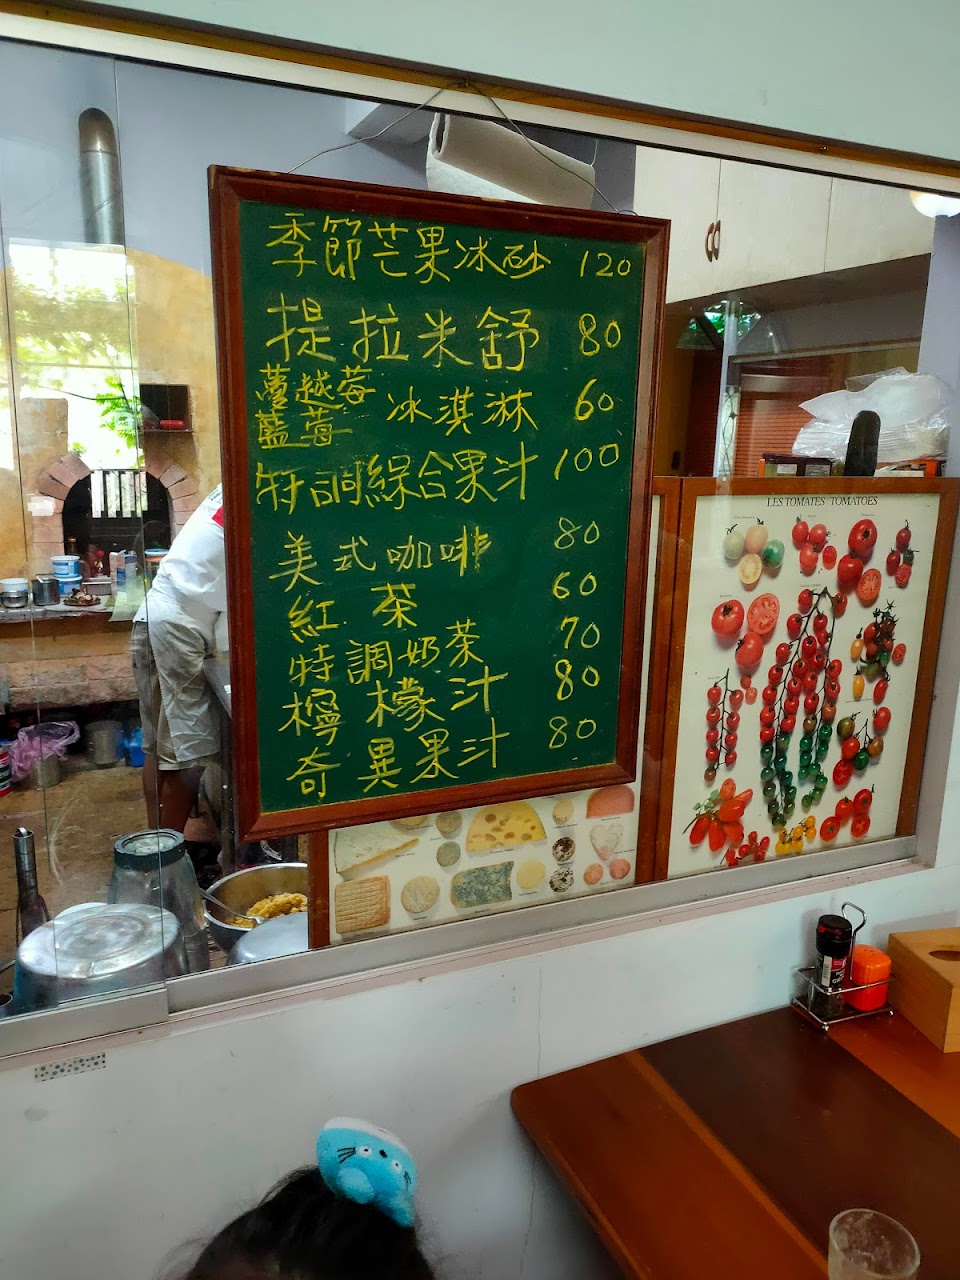 季節芒果冰砂 120
提拉米舒 80
蔓越莓
藍莓 冰淇淋 60
特調綜合果汁 100
美式咖啡 80
紅茶 60
特調奶茶 70
檸檬汁 80
奇異果汁 80
LES TOMATES TOMATOES